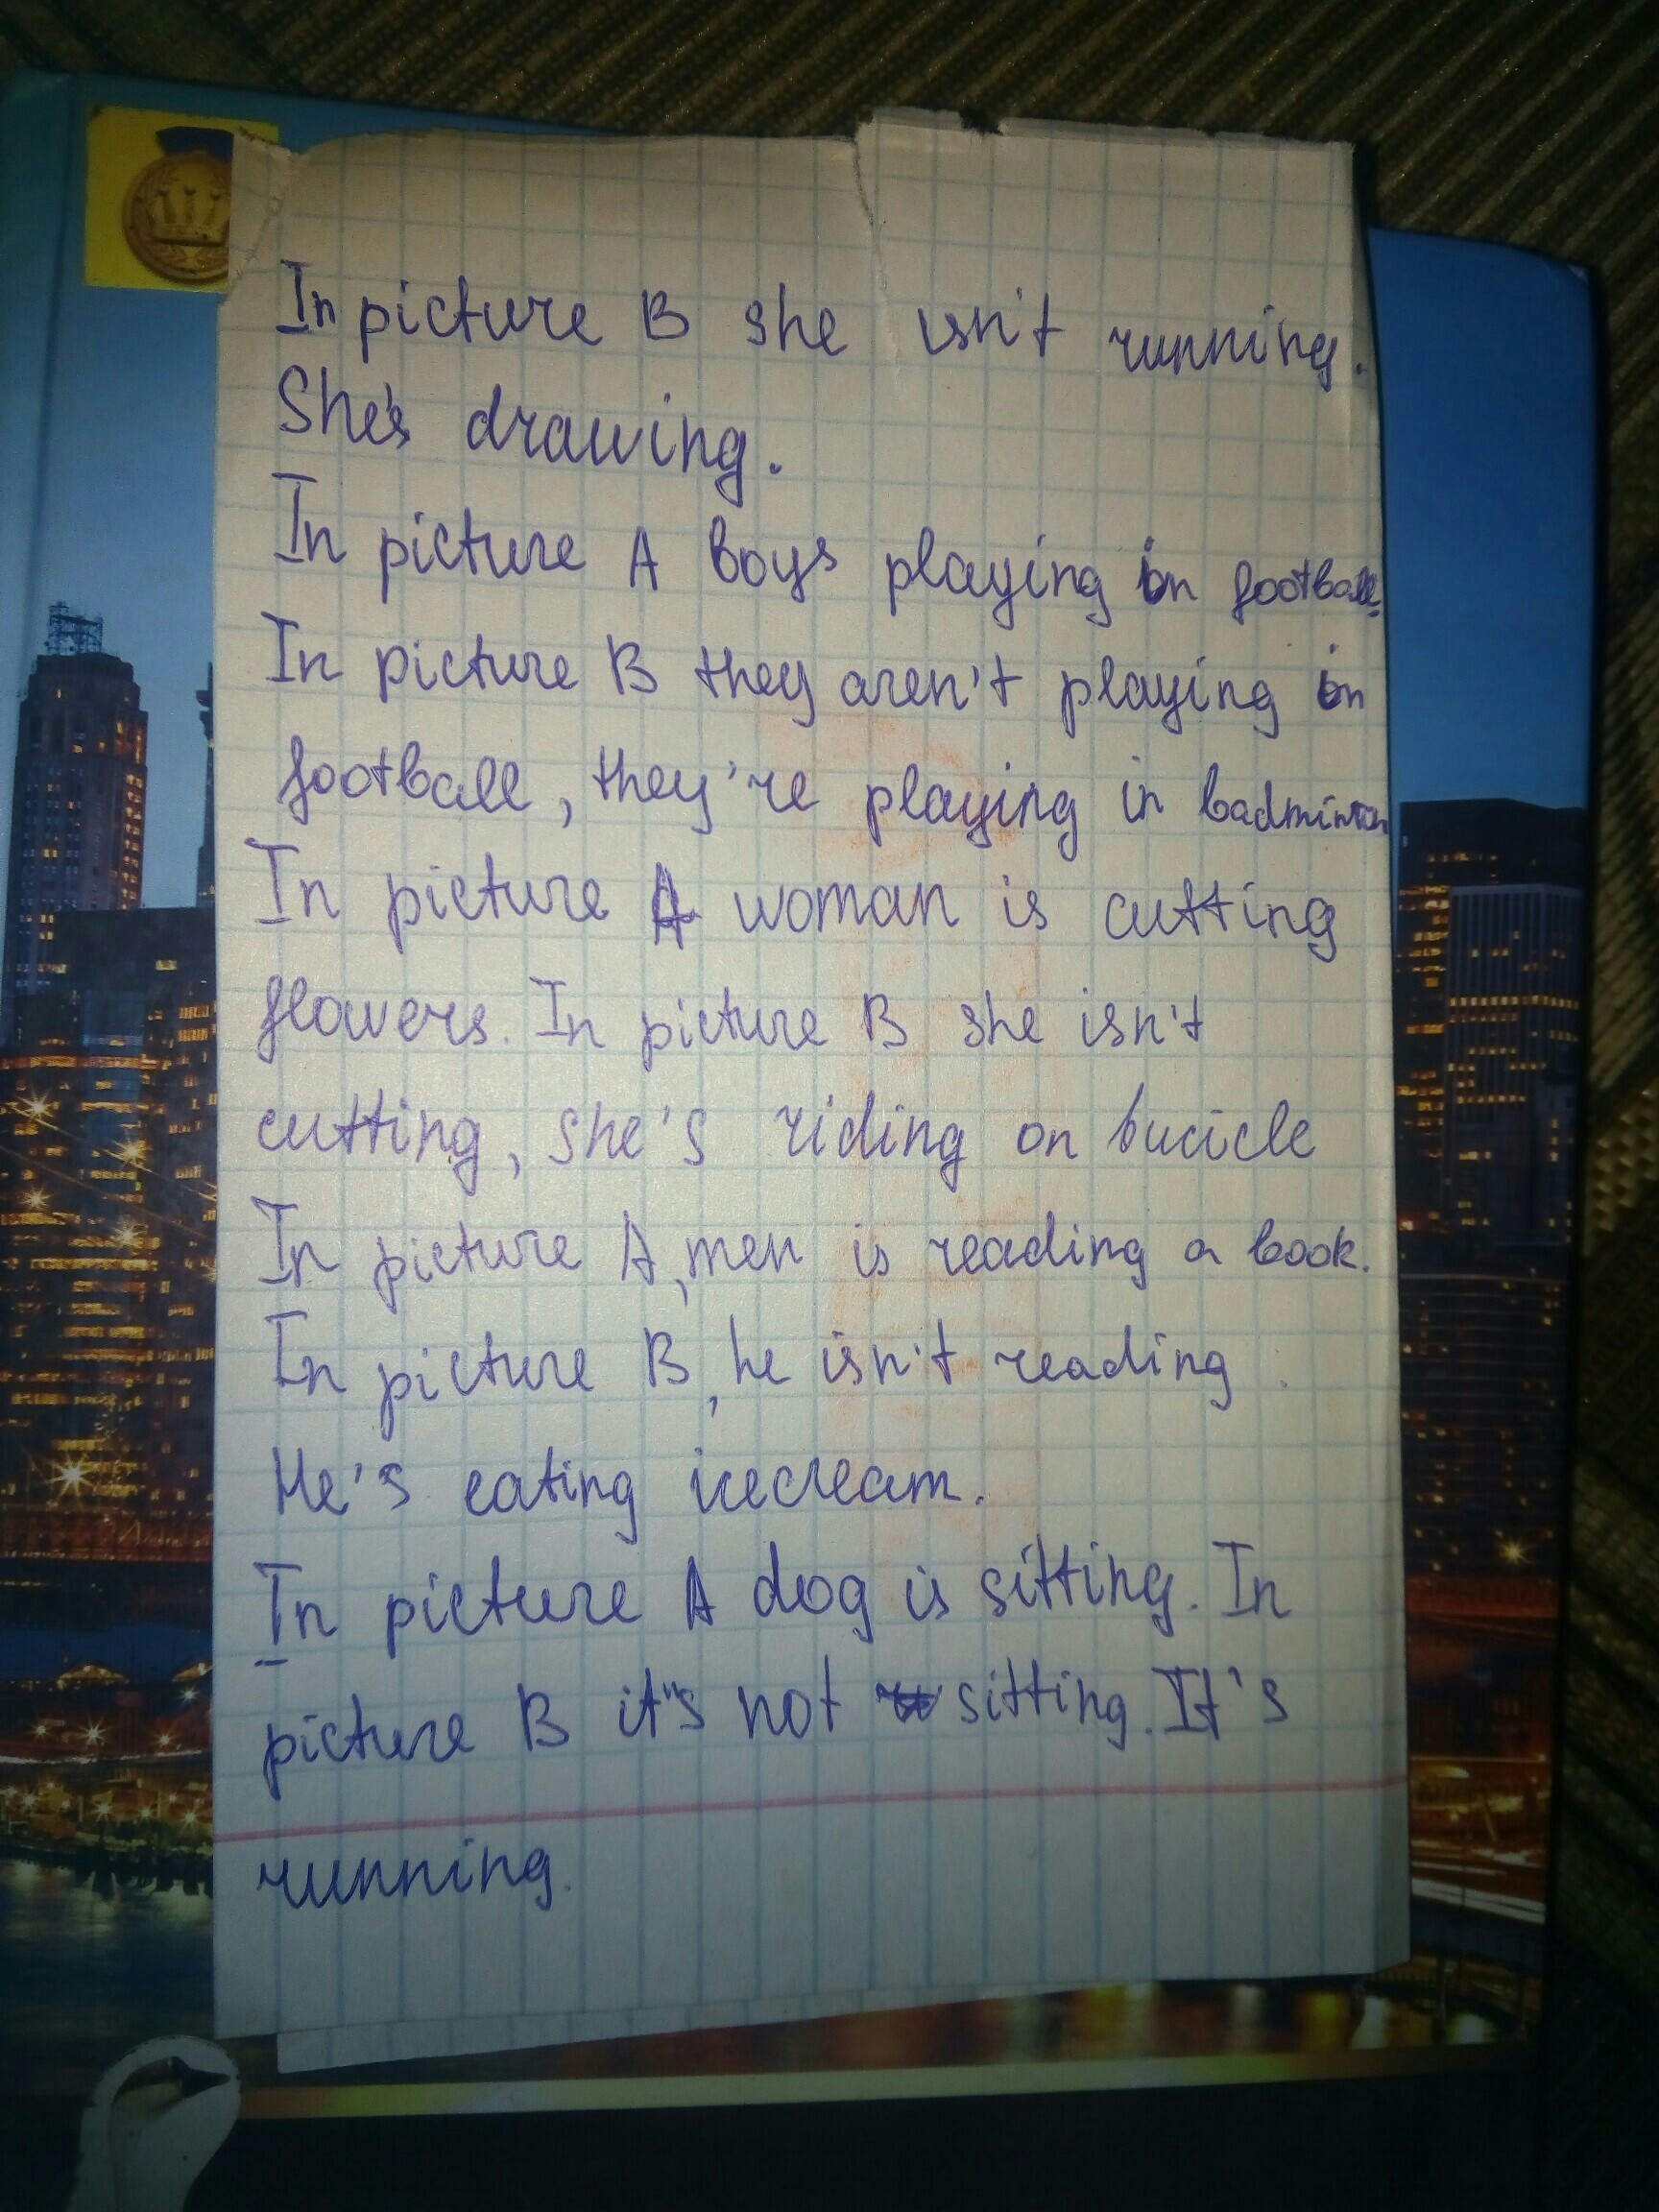 In picture B she isn't running.
She's drawing.
In picture A boys playing in football.
In picture B they aren't playing in
football, they're playing in badminton
In picture A woman is cutting
flowers. In picture B she isn't
cutting, she's riding on bucicle
In picture A, men is reading a book.
In picture B, he isn't reading.
He's eating icecream.
In picture A dog is sitting. In
picture B it's not sitting. It's
running.